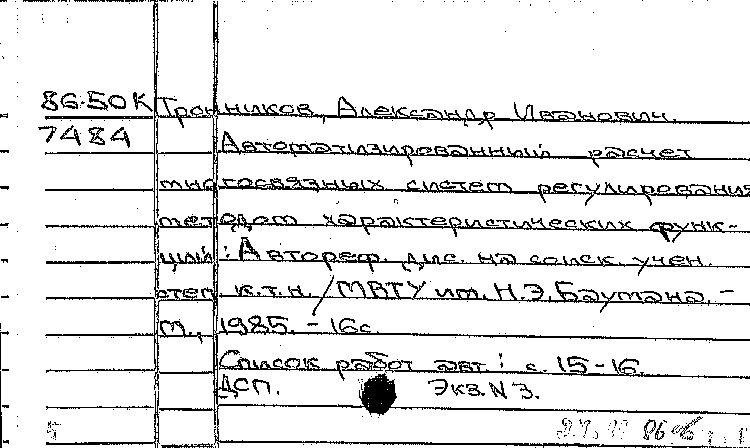 86-50К Тронников, Александр Иванович.
7484 Автоматизированный расчет
многосвязных систем регулирования
методом характеристических функ-
ций : Автореф. дис. на соиск. учен.
степ. к.т.н. / МВТУ им. Н.Э. Баумана. -
М., 1985. - 16с.
Список работ авт.: с. 15-16.
ДСП. Экз. N 3.
5 86